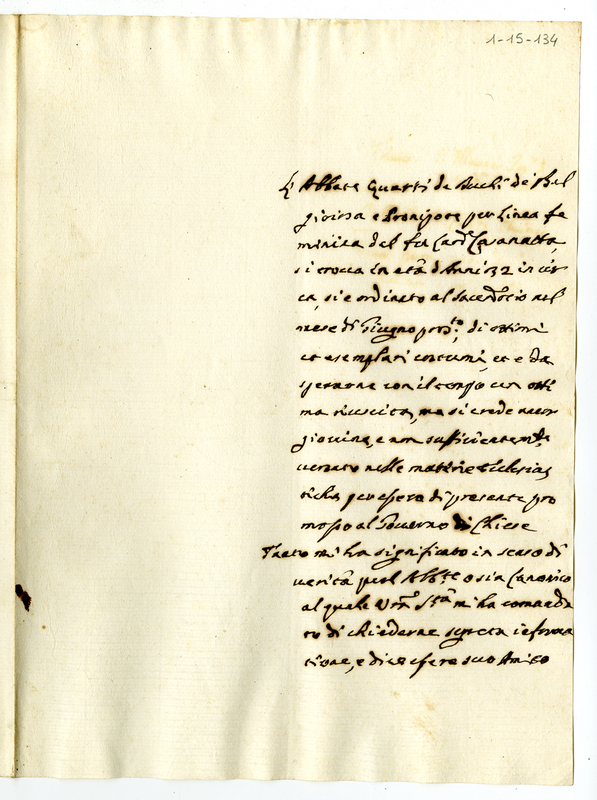 1-15-134
L'Abbate Quarti de Duchi di Bel
gioiosa e Pronipote per Linea fe
minina del fu Card.e Casanatta,
si trova in età d'Anni 32 in cir
ca, si è ordinato al Sacerdotio nel
mese di Giugno pros.to; di ottimi
et esemplari costumi, et e da
sperarne con il tempo un otti
ma riuscita, ma si crede ancor
giovine, e non sufficientem.te
versato nelle materie Eclesias
tiche per essere di presente pro
mosso al Governo di Chiese
Tanto mi ha significato in senso di
verità quel Ab.te o sia Canonico
al quale V.ra S.tà mi ha comanda
to di chiederne segreta informa
tione, e di essere suo Amico